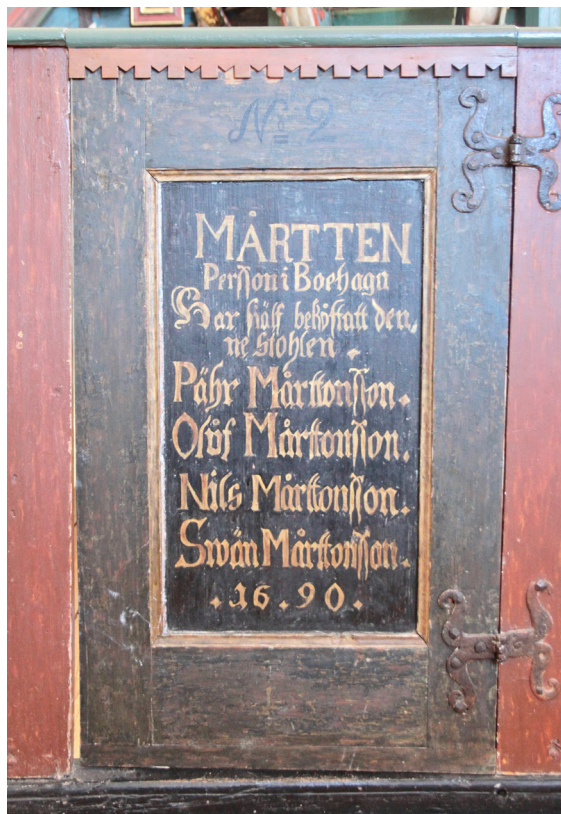 No 2
MÅRTTEN
Persson i Boehaga
Har siälf bekåstatt den,
ne Stohlen.
Pähr Mårttonsson.
Olůf Mårttonsson.
Nils Mårttonsson.
Swän Mårttonsson.
.1690.